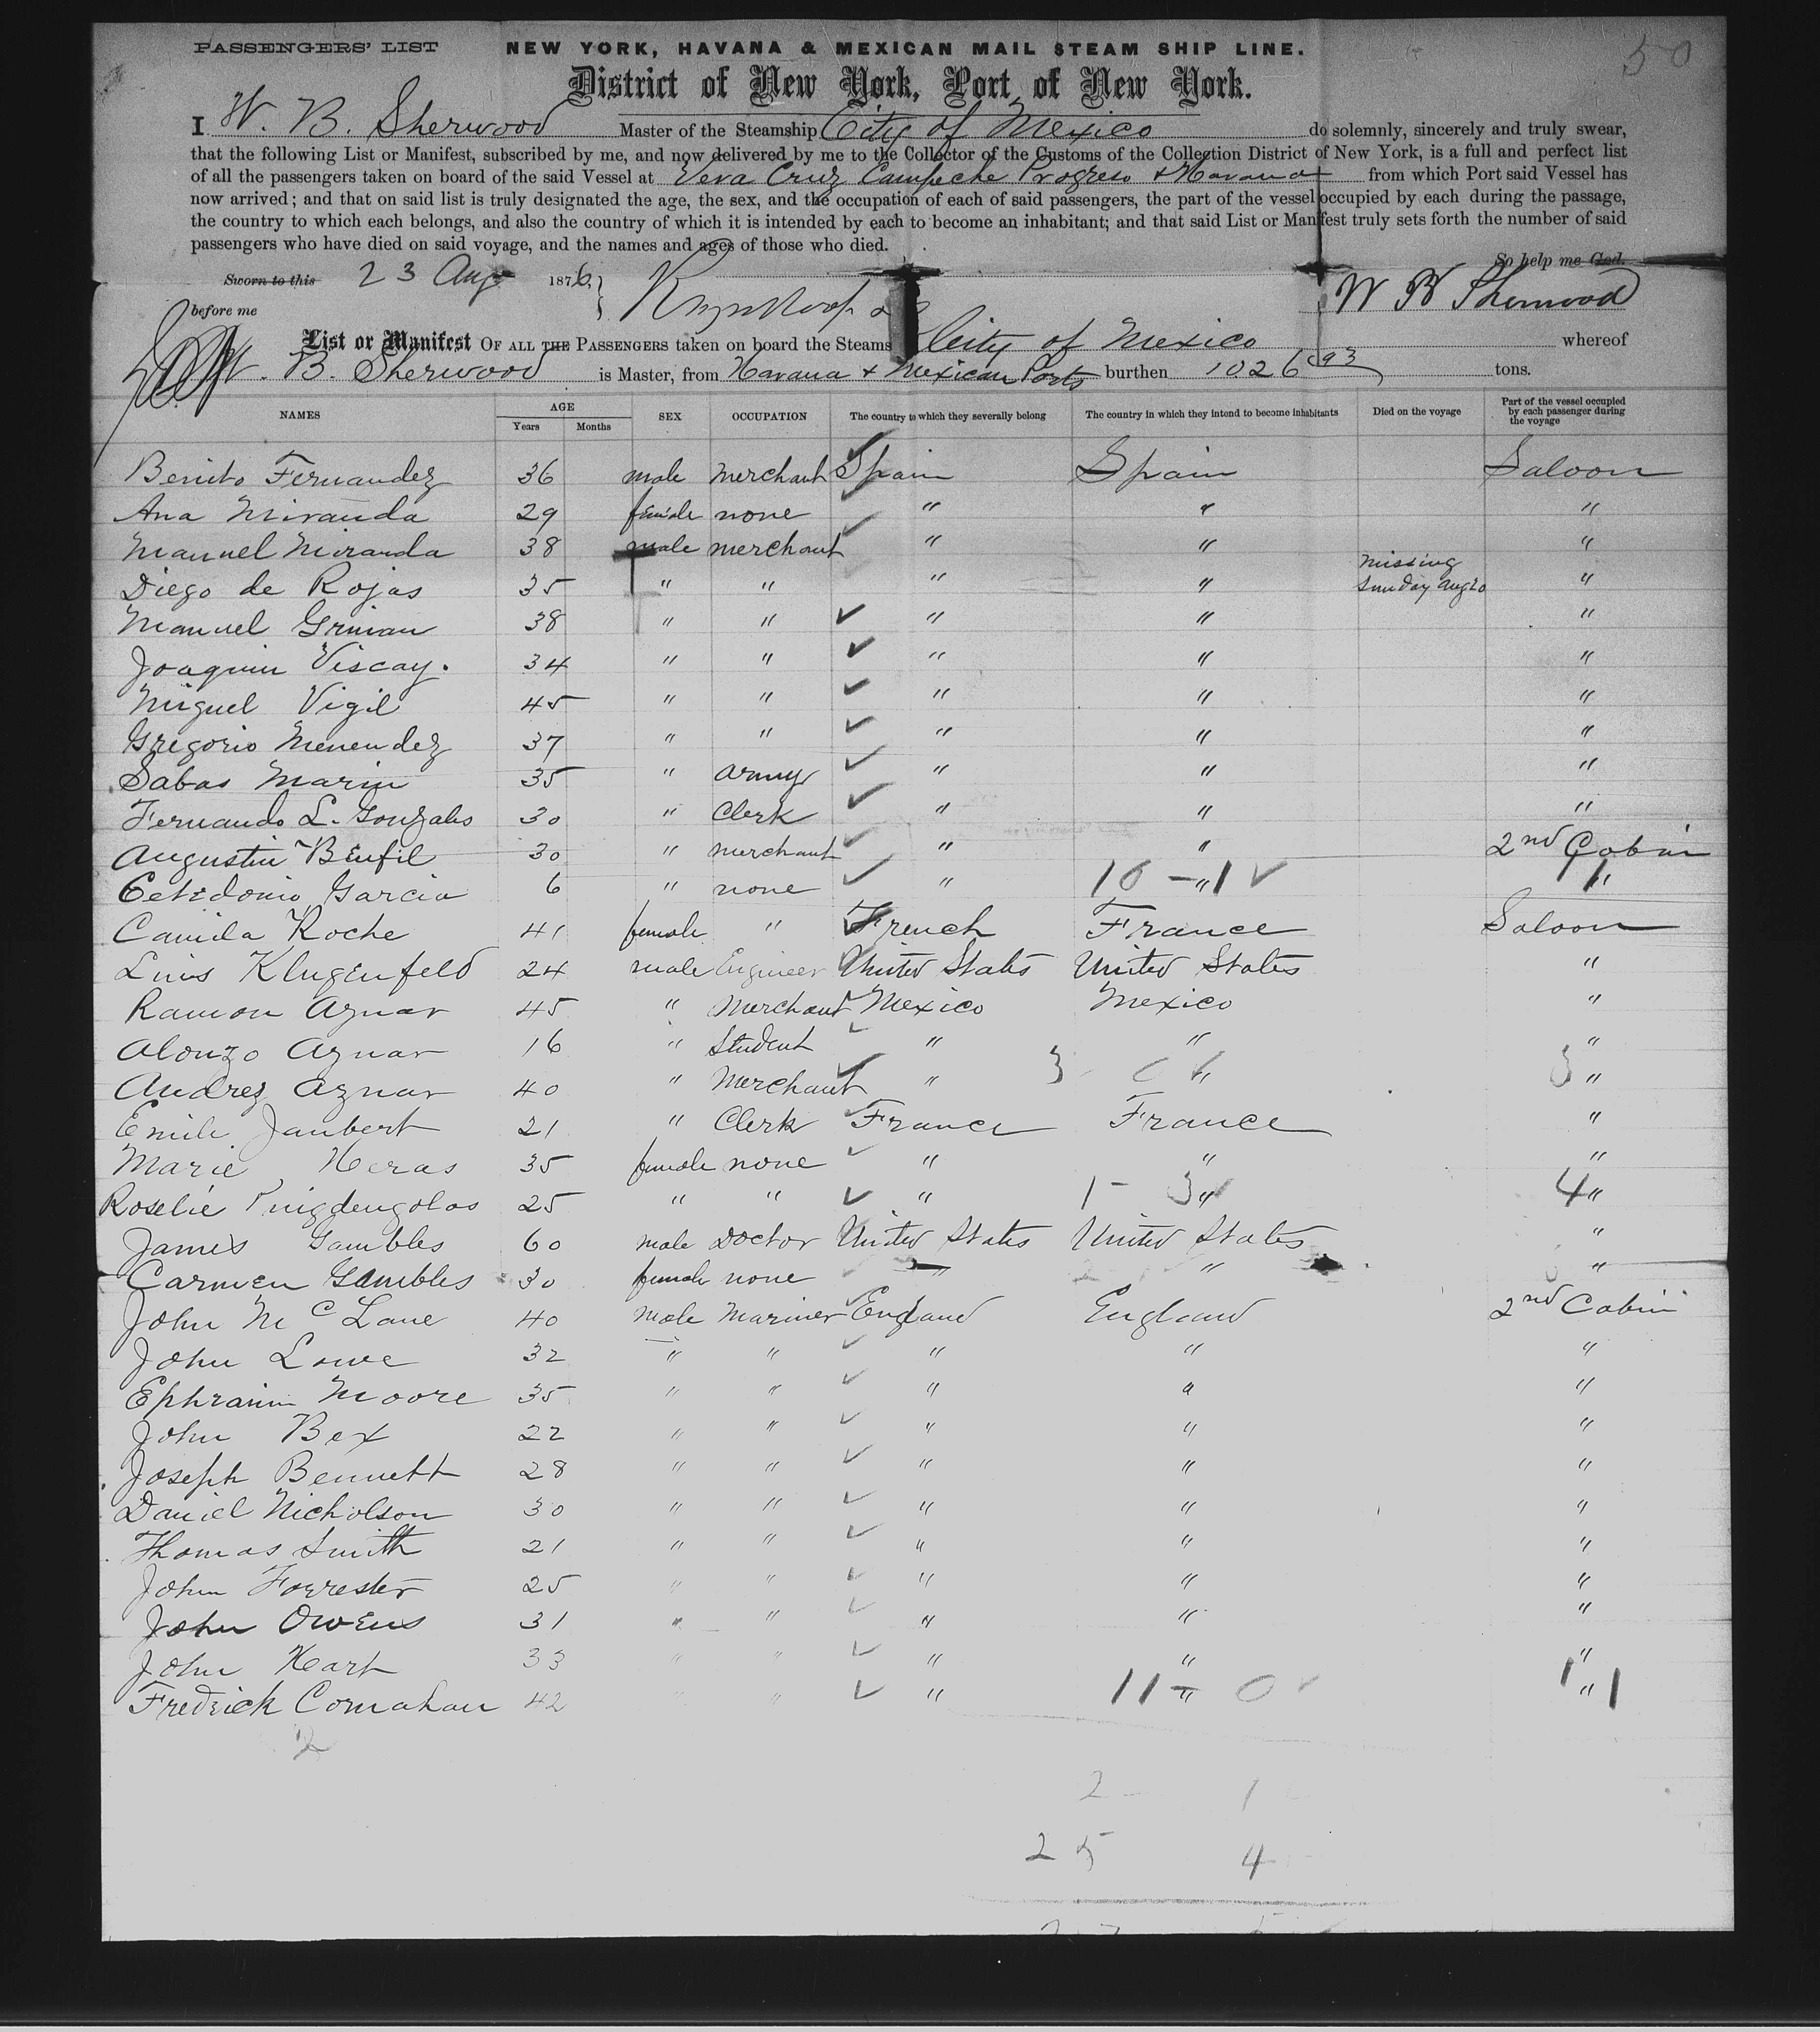 50
PASSENGERS' LIST NEW YORK, HAVANA & MEXICAN MAIL STEAM SHIP LINE.
District of New York, Port of New York.
I W. B. Sherwood Master of the Steamship City of Mexico do solemnly, sincerely and truly swear,
that the following List or Manifest, subscribed by me, and now delivered by me to the Collector of the Customs of the Collection District of New York, is a full and perfect list
of all the passengers taken on board of the said Vessel at Vera Cruz Campeche Progreso & Havana from which Port said Vessel has
now arrived; and that on said list is truly designated the age, the sex, and the occupation of each of said passengers, the part of the vessel occupied by each during the passage,
the country to which each belongs, and also the country of which it is intended by each to become an inhabitant; and that said List or Manifest truly sets forth the number of said
passengers who have died on said voyage, and the names and ages of those who died.
So help me God.
Sworn to this 23 Aug 1876,
before me W B Sherwood
List or Manifest OF ALL THE PASSENGERS taken on board the Steams City of Mexico whereof
W. B. Sherwood is Master, from Havana & Mexican Ports burthen 1026 93 tons.
NAMES AGE Years Months SEX OCCUPATION The country to which they severally belong The country in which they intend to become inhabitants Died on the voyage Part of the vessel occupied by each passenger during the voyage
Benito Fernandez 36 male merchant Spain Spain Saloon
Ana Miranda 29 female none " " "
Manuel Miranda 38 male merchant " " "
Diego de Rojas 35 " " " " missing Sunday Aug 20 "
Manuel 38 " " " " "
Joaquin Viscay. 34 " " " " "
Miguel Vigil 45 " " " " "
Gregorio Menendez 37 " " " " "
Sabas Marin 35 " army " " "
Fernando L. Gonzales 30 " Clerk " " "
Augustin Benfil 30 " merchant " " 2nd Cabin
Celedonio Garcia 6 " none " 10 - " 1 1 "
Camila Roche 41 female " French France Saloon
Luis Klugenfeld 24 male Engineer United States United States "
Ramon Aznar 45 " Merchant Mexico Mexico "
Alonzo Aznar 16 " Student " " "
Andrez Aznar 40 " Merchant " 3 0 " 3 "
Emile Jaubert 21 " Clerk France France "
Marie Heras 35 female none " " "
Roselie Puigdengolas 25 " " " 1 - 3 " 4 "
James Gambles 60 male Doctor United States United States "
Carmen Gambles 30 female none " " "
John McLane 40 male Mariner England England 2nd Cabin
John Lowe 32 " " " " "
Ephraim Moore 35 " " " " "
John Bex 22 " " " " "
Joseph Bennett 28 " " " " "
Daniel Nicholson 30 " " " " "
Thomas Smith 21 " " " " "
John Forrester 25 " " " " "
John Owens 31 " " " " "
John Hart 33 " " " " "
Fredrick Comahan 42 " " " 11 - " 0 1 " 1
2
2 - 1
25 4